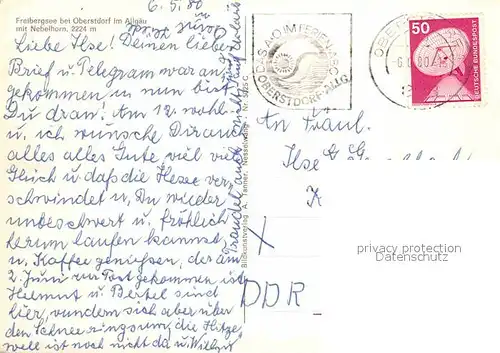 6.5.80
Freibergsee bei Oberstdorf im Allgäu
mit Nebelhorn, 2224 m
Liebe Ilse! Deinen lieben
Brief u. Telegram war an,
gekommen, u nun bist
Du dran! Am 12. wohl
u. ich wünsche Dir auch
alles alles Gute viel viel
Glück u daß die Hexe ver,
schwindet u, Du wieder
unbeschwert u, fröhlich
herum laufen kannst
u, Kaffee genießen, der am
2. Juni zur Post gekommen ist
Helmut u. Bertel sind
hier, wundern sich aber über
den Schnee ringsum, die Hitze
well ist noch nicht da u, Willy u
Bildkunstverlag A. Tanner, Nesselwang
OBERSTDORF/ALLG.
50
DEUTSCHE BUNDESPOST
An Fräul.
Ilse
K
X
DDR
privacy protection
Datenschutz